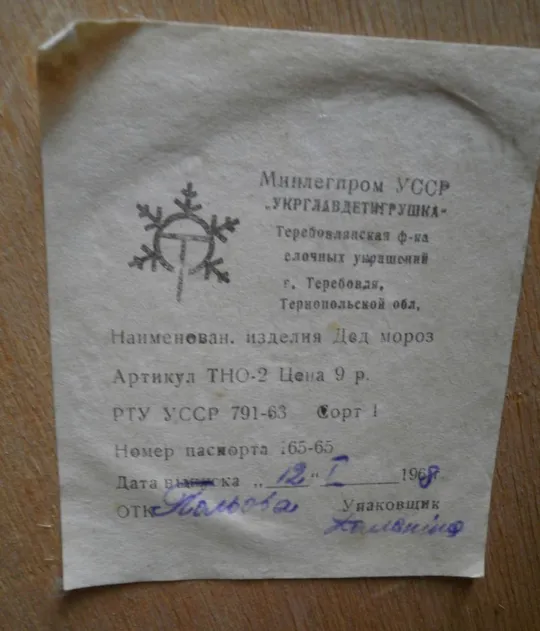 Минлегпром УССР
„УКРГЛАВДЕТИГРУШКА“
Теребовлянская ф-ка
елочных украшений
г. Теребовля,
Тернопольской обл,
Наименован. изделия Дед мороз
Артикул ТНО-2 Цена 9 р.
РТУ УССР 791-63 Сорт 1
Номер паспорта 165-65
Дата выпуска „ 12 “ I 1968г
ОТК Упаковщик